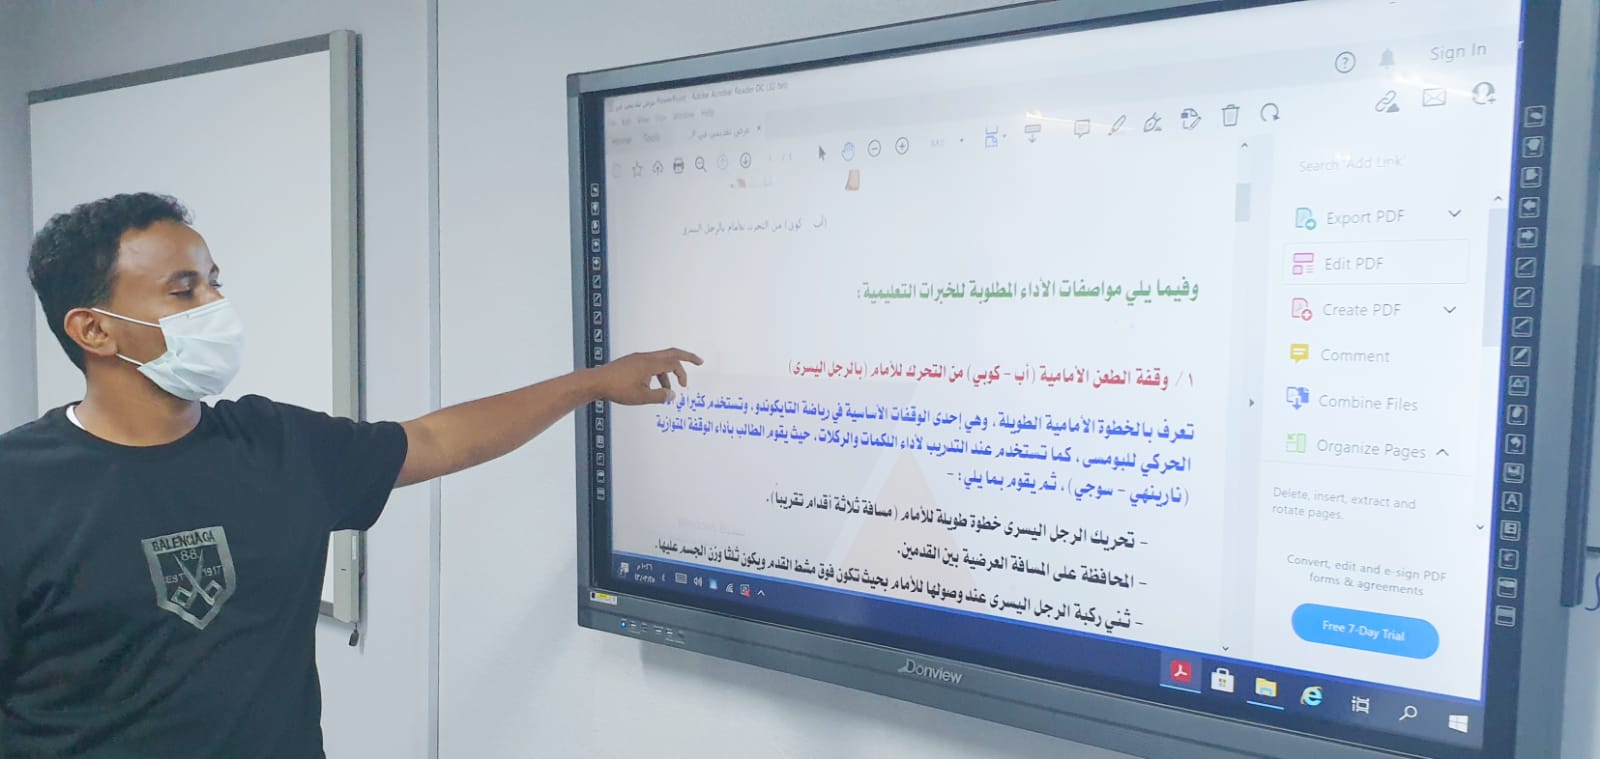 PowerPoint - Adobe Acrobat Reader DC (32 bit)
Home Tools
Sign In
(أب كوبي) من التحرك للأمام بالرجل اليسرى
وفيما يلي مواصفات الأداء المطلوبة للخبرات التعليمية :
١ / وقفة الطعن الأمامية (أب - كوبي) من التحرك للأمام (بالرجل اليسرى)
تعرف بالخطوة الأمامية الطويلة ، وهي إحدى الوقفات الأساسية في رياضة التايكوندو، وتستخدم كثيرا في
الحركي للبومسى ، كما تستخدم عند التدريب لأداء اللكمات والركلات. حيث يقوم الطالب بأداء الوقفة المتوازية
(نارينهي - سوجي) ، ثم يقوم بما يلي: -
- تحريك الرجل اليسرى خطوة طويلة للأمام (مسافة ثلاثة أقدام تقريباً).
- المحافظة على المسافة العرضية بين القدمين.
- ثني ركبة الرجل اليسرى عند وصولها للأمام بحيث تكون فوق مشط القدم ويكون ثلثا وزن الجسم عليها.
Search 'Add Link'
Export PDF
Edit PDF
Create PDF
Comment
Combine Files
Organize Pages
Delete, insert, extract and
rotate pages.
Convert, edit and e-sign PDF
forms & agreements
Free 7-Day Trial
Donview
BALENCIAGA
88
EST 1917